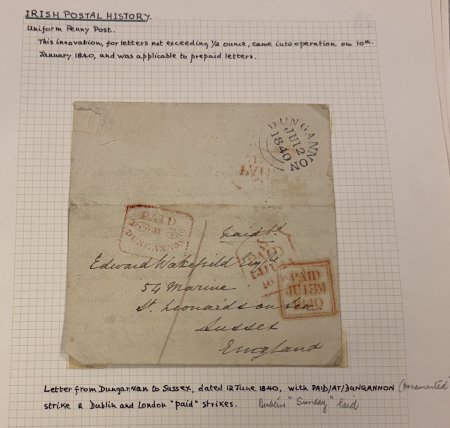 IRISH POSTAL HISTORY.
Uniform Penny Post.
This innovation, for letters not exceeding ½ ounce, came into operation on 10th.
January 1840, and was applicable to prepaid letters.
DUNGANNON
JU 12
1840
PAID
PAID
DUNGANNON
Paid
Edward Wakefield
PAID
54 Marine
PAID
JU 13M
1840
St. Leonards on Sea
Sussex
England
Letter from Dungannan to Sussex, dated 12 June 1840, with PAID/AT/DUNGANNON (Ornamented)
strike & Dublin and London "paid" strikes. Dublin "Sunday" Paid